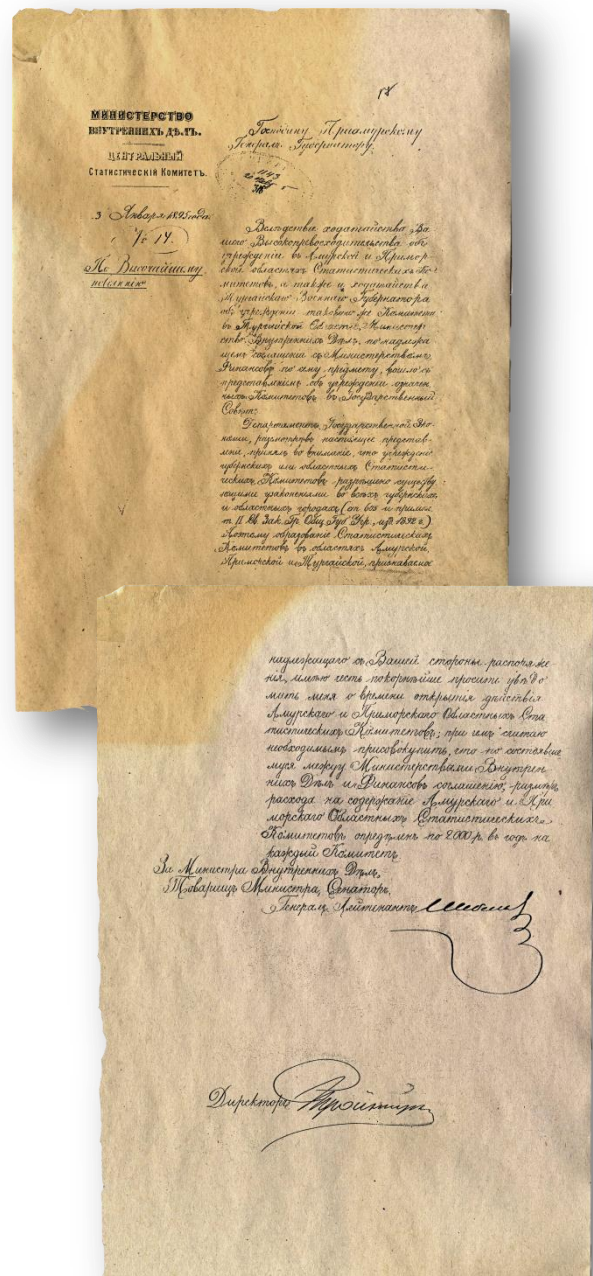 18
МИНИСТЕРСТВО
ВНУТРЕННИХЪ ДѢЛЪ.
ЦЕНТРАЛЬНЫЙ
Статистическій Комитетъ.
3 Января 1895 года
№ 14.
По Высочайшему
повелѣнію
Господину Приамурскому
Генералъ Губернатору.
1143
Вслѣдствіе ходатайства Ва
шего Высокопревосходительства объ
учрежденіи въ Амурской и Примор
ской областяхъ Статистическихъ Ко
митетовъ, а также и ходатайства
Тургайскаго Военнаго Губернатора
объ учрежденіи таковаго же Комитета
въ Тургайской Области, Министер
ство Внутреннихъ Дѣлъ, по надлежа
щемъ соглашеніи съ Министерствомъ
Финансовъ по сему предмету, вошло съ
представленіемъ объ учрежденіи означен
ныхъ Комитетовъ въ Государственный
Совѣтъ.
Департаментъ Государственной Эко
номіи, разсмотрѣвъ настоящее представ
леніе, принялъ во вниманіе, что учрежденіе
губернскихъ или областныхъ Статисти
ческихъ Комитетовъ разрѣшено существу
ющими узаконеніями во всѣхъ губернскихъ
и областныхъ городахъ (ст. 652 и примѣч.
т. II Св. Зак. Гр. Общ. Губ. Учр., изд. 1892 г.)
Поэтому образованіе Статистическихъ
Комитетовъ въ областяхъ Амурской,
Приморской и Тургайской, признаваемое
надлежащаго съ Вашей стороны распоряже
нія, имѣю честь покорнѣйше просить увѣдо
мить меня о времени открытія дѣйствія
Амурскаго и Приморскаго Областныхъ Ста
тистическихъ Комитетовъ; при чемъ считаю
необходимымъ присовокупить, что по состоявше
муся между Министерствами Внутрен
нихъ Дѣлъ и Финансовъ соглашенію, размѣръ
расхода на содержаніе Амурскаго и При
морскаго Областныхъ Статистическихъ
Комитетовъ опредѣленъ по 2000 р. въ годъ на
каждый Комитетъ.
За Министра Внутреннихъ Дѣлъ,
Товарищъ Министра, Сенаторъ,
Генералъ Лейтенантъ
Директоръ